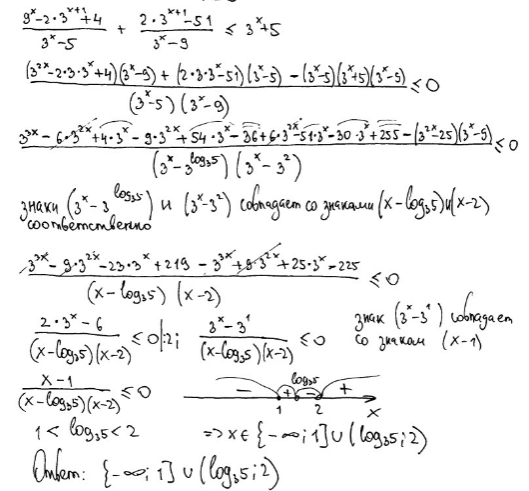 (9^x - 2·3^(x+1) + 4)/(3^x - 5) + (2·3^(x+1) - 51)/(3^x - 9) ≤ 3^x + 5
((3^(2x) - 2·3·3^x + 4)(3^x - 9) + (2·3·3^x - 51)(3^x - 5) - (3^x - 5)(3^x + 5)(3^x - 9))/((3^x - 5)(3^x - 9)) ≤ 0
(3^(3x) - 6·3^(2x) + 4·3^x - 9·3^(2x) + 54·3^x - 36 + 6·3^(2x) - 51·3^x - 30·3^x + 255 - (3^(2x) - 25)(3^x - 9))/((3^x - 3^(log₃5))(3^x - 3^2)) ≤ 0
знаки (3^x - 3^(log₃5)) и (3^x - 3^2) совпадает со знаками (x - log₃5) и (x - 2)
соответственно
(3^(3x) - 9·3^(2x) - 23·3^x + 219 - 3^(3x) + 9·3^(2x) + 25·3^x - 225)/((x - log₃5)(x - 2)) ≤ 0
(2·3^x - 6)/((x - log₃5)(x - 2)) ≤ 0 |:2; (3^x - 3^1)/((x - log₃5)(x - 2)) ≤ 0 знак (3^x - 3^1) совпадает
со знаком (x - 1)
(x - 1)/((x - log₃5)(x - 2)) ≤ 0
- + log₃5 - +
1 2 x
1 < log₃5 < 2 => x ∈ {-∞; 1] ∪ (log₃5; 2)
Ответ: {-∞; 1] ∪ (log₃5; 2)